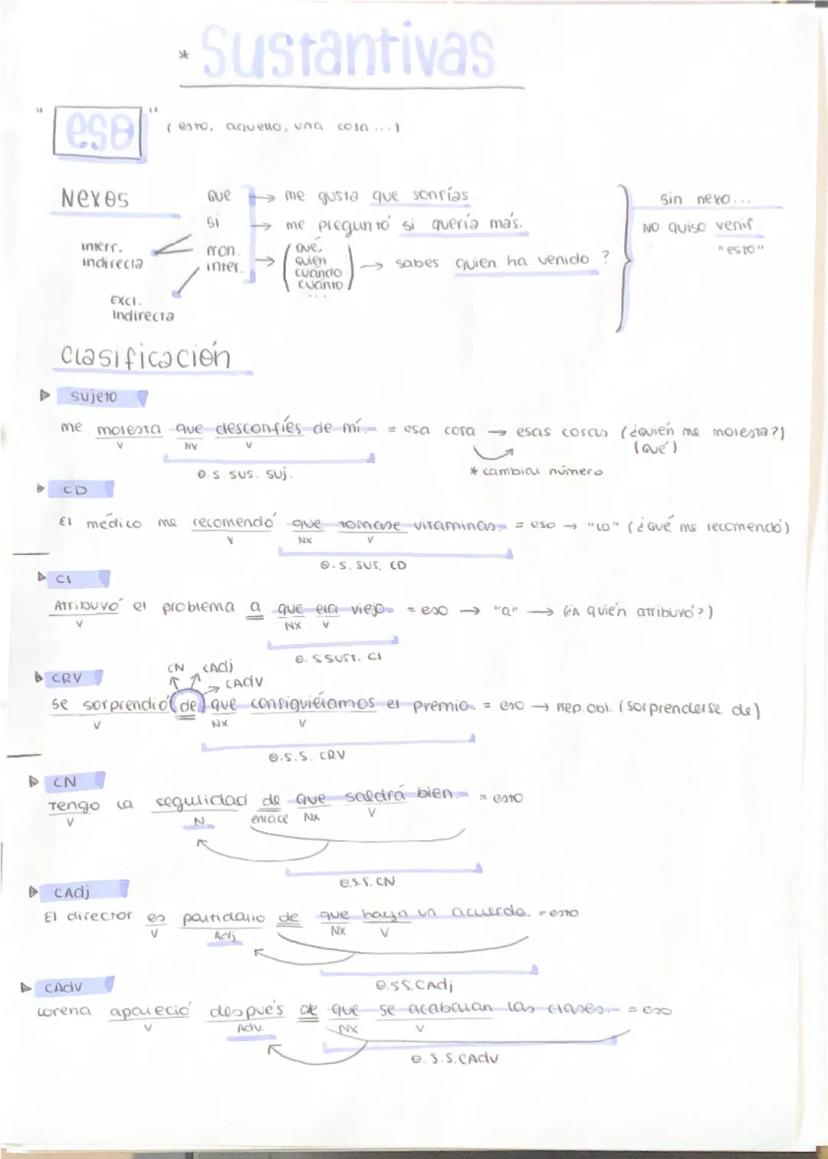 * Sustantivas
"eso" (esto, aquello, una cosa...)
Nexos
que → me gusta que sonrías.
si → me preguntó si quería más.
pron. inter. → (qué, quien, cuándo, cuánto, ...) → sabes quien ha venido?
interr. indirecta
Excl. indirecta
sin nexo...
NO quiso venir.
"esto"
Clasificación
▷ Sujeto
me molesta que desconfíes de mí. = esa cosa → esas cosas (¿quién me molesta?)
V NX V (qué)
O.S SUS. Suj. * cambiar número
▷ CD
El médico me recomendó que tomase vitaminas. = eso → "lo" (¿qué me recomendó)
V NX V
O.S. SUS. CD
▷ CI
Atribuyó el problema a que era viejo. = eso → "a" → (¿A quién atribuyó?)
V NX V
O. S SUST. CI
▷ CRV
CN CAdj CAdV
se sorprendió de que consiguiéramos el premio. = eso → Prep. obl. (sorprenderse de)
V NX V
O.S.S. CRV
▷ CN
Tengo la seguridad de que saldrá bien. = esto
V N enlace NX V
O.S.S. CN
▷ CAdj
El director es partidario de que haya un acuerdo. = esto
V Adj NX V
O.S.S. CAdj
▷ CAdV
Lorena apareció después de que se acabaran las clases. = eso
V Adv. NX V
O.S.S. CAdV